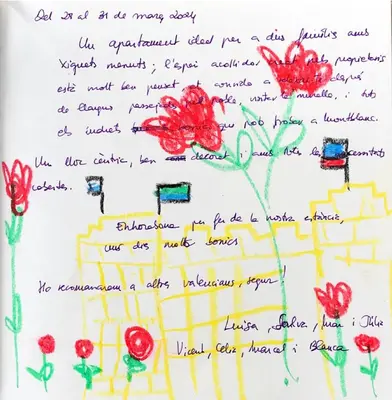 Del 28 al 31 de març 2024
Un apartament ideal per a dos famílies amb
xiquets menuts; l'espai acollidor creat pels propietaris
està molt ben pensat et convida a después
de llargues pel poble, visitar la muralla, i tots
els indrets que pot trobar a Montblanc.
Un lloc cèntric, ben decorat i amb totes les necessitats
cobertes.
Enhorabona per fer de la nostra estància,
uns dies molts bonics
Ho recomanarem a altres valencians, segur!
Lluïsa, Mar i Júlia
Vicent, Celia, Marcel i Blanca